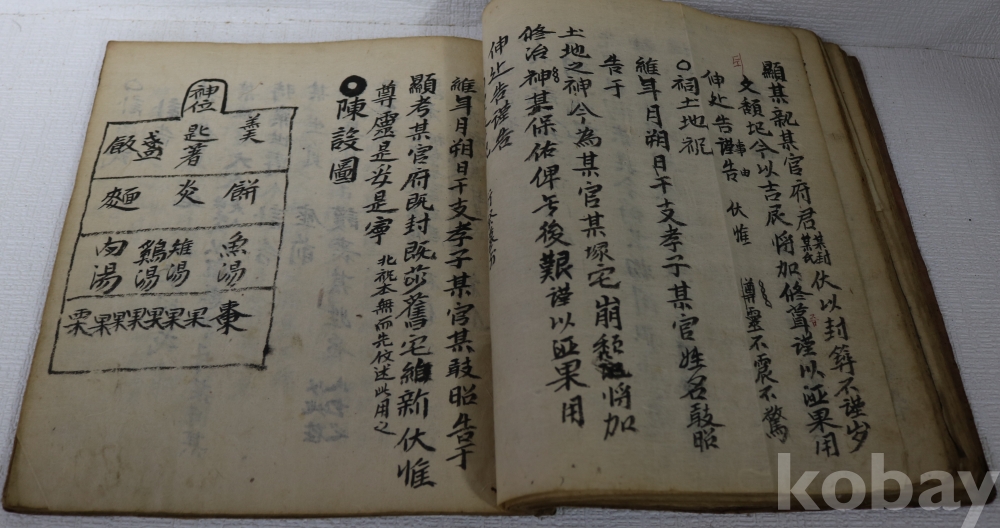 顯某親某官府君某封某氏伏以封築不謹岁
久頹圮今以吉辰將加修葺謹以酒果用
伸处告謹告 伏惟 尊靈不震不驚
事由
〇祠土地祝
維年月朔日干支孝子某官姓名敢昭
告于
土地之神今為某官某塚宅崩頹將加
修治神其保佑俾無後艱謹以酒果用
伸处告謹告
維年月朔日干支孝子某官某敢昭告于
顯考某官府既封既莎舊宅維新伏惟
尊靈是安是寧 此祝本無而先伩述此用之
〇陳設圖
神位
羹 匙著 盞 飯
餠 炙 麵
魚湯 雉湯 鷄湯 肉湯
棗 果 果 果 果 果 栗
kobay